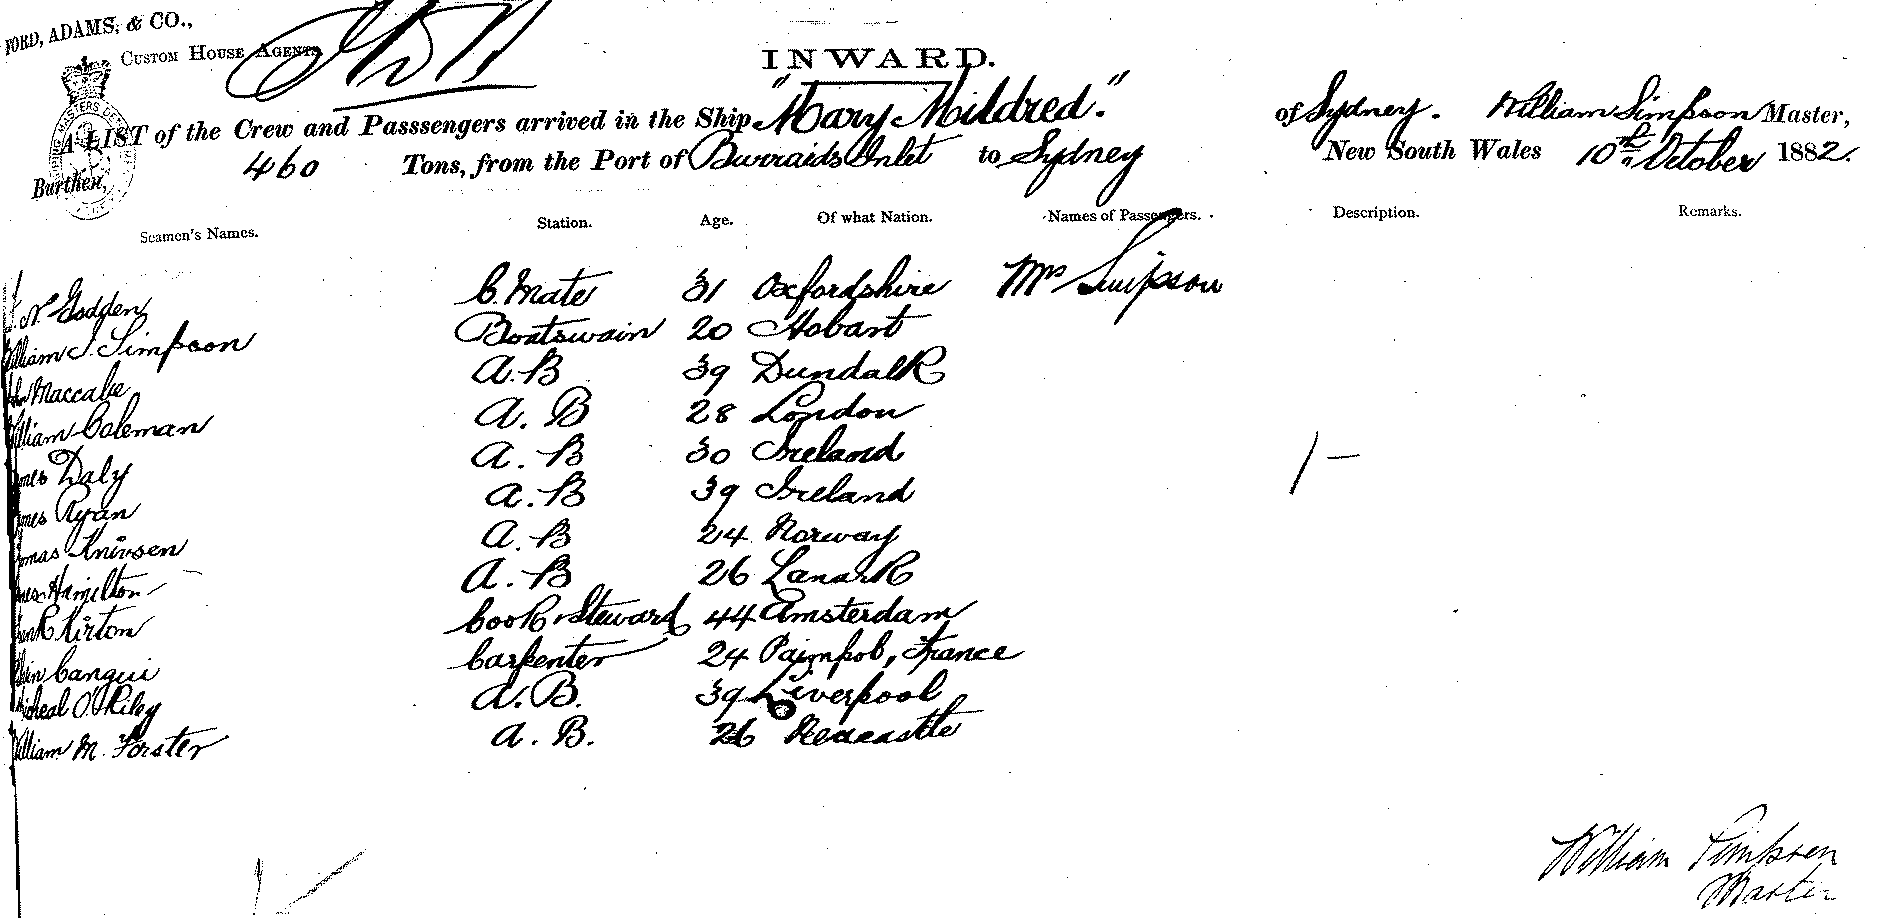 FORD, ADAMS, & CO.,
CUSTOM HOUSE AGENTS
INWARD.
A LIST of the Crew and Passsengers arrived in the Ship "Mary Mildred." of Sydney. William Simpson Master,
Burthen, 460 Tons, from the Port of Burrards Inlet to Sydney New South Wales 10th October 1882.
Seamen's Names. Station. Age. Of what Nation. Names of Passengers. Description. Remarks.
N Godden C. Mate 31 Oxfordshire Mrs Simpson
William S. Simpson Boatswain 20 Hobart
Maccabe A.B 39 Dundalk
William Coleman A.B 28 London
Daly A.B 30 Ireland
Ryan A.B 39 Ireland
Thomas Knivsen A.B 24 Norway
Hamilton A.B 26 Lanark
Kirton Cook & Steward 44 Amsterdam
Cangui Carpenter 24 Paimpol, France
Micheal O'Riley A.B. 39 Liverpool
William M. Forster A.B. 26 Newcastle
William Simpson
Master